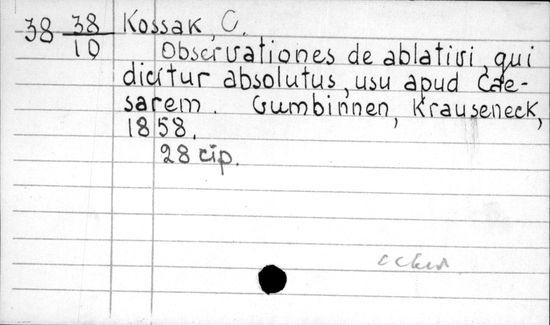 38 38/10 Kossak, C.
Observationes de ablativi, qui
dicitur absolutus, usu apud Cae-
sarem. Gumbinnen, Krauseneck,
1858.
28 стр.